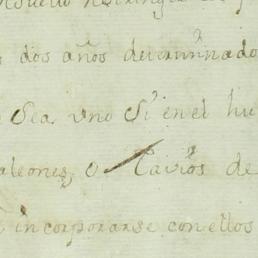 dos años determinado
Sea uno Sí en el hu
aleones, o Navíos de
incorporarse con ellos